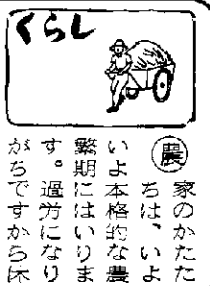 くらし
農家のかたた
ちは、いよ
いよ本格的な農
繁期にはいりま
す。過労になり
がちですから休